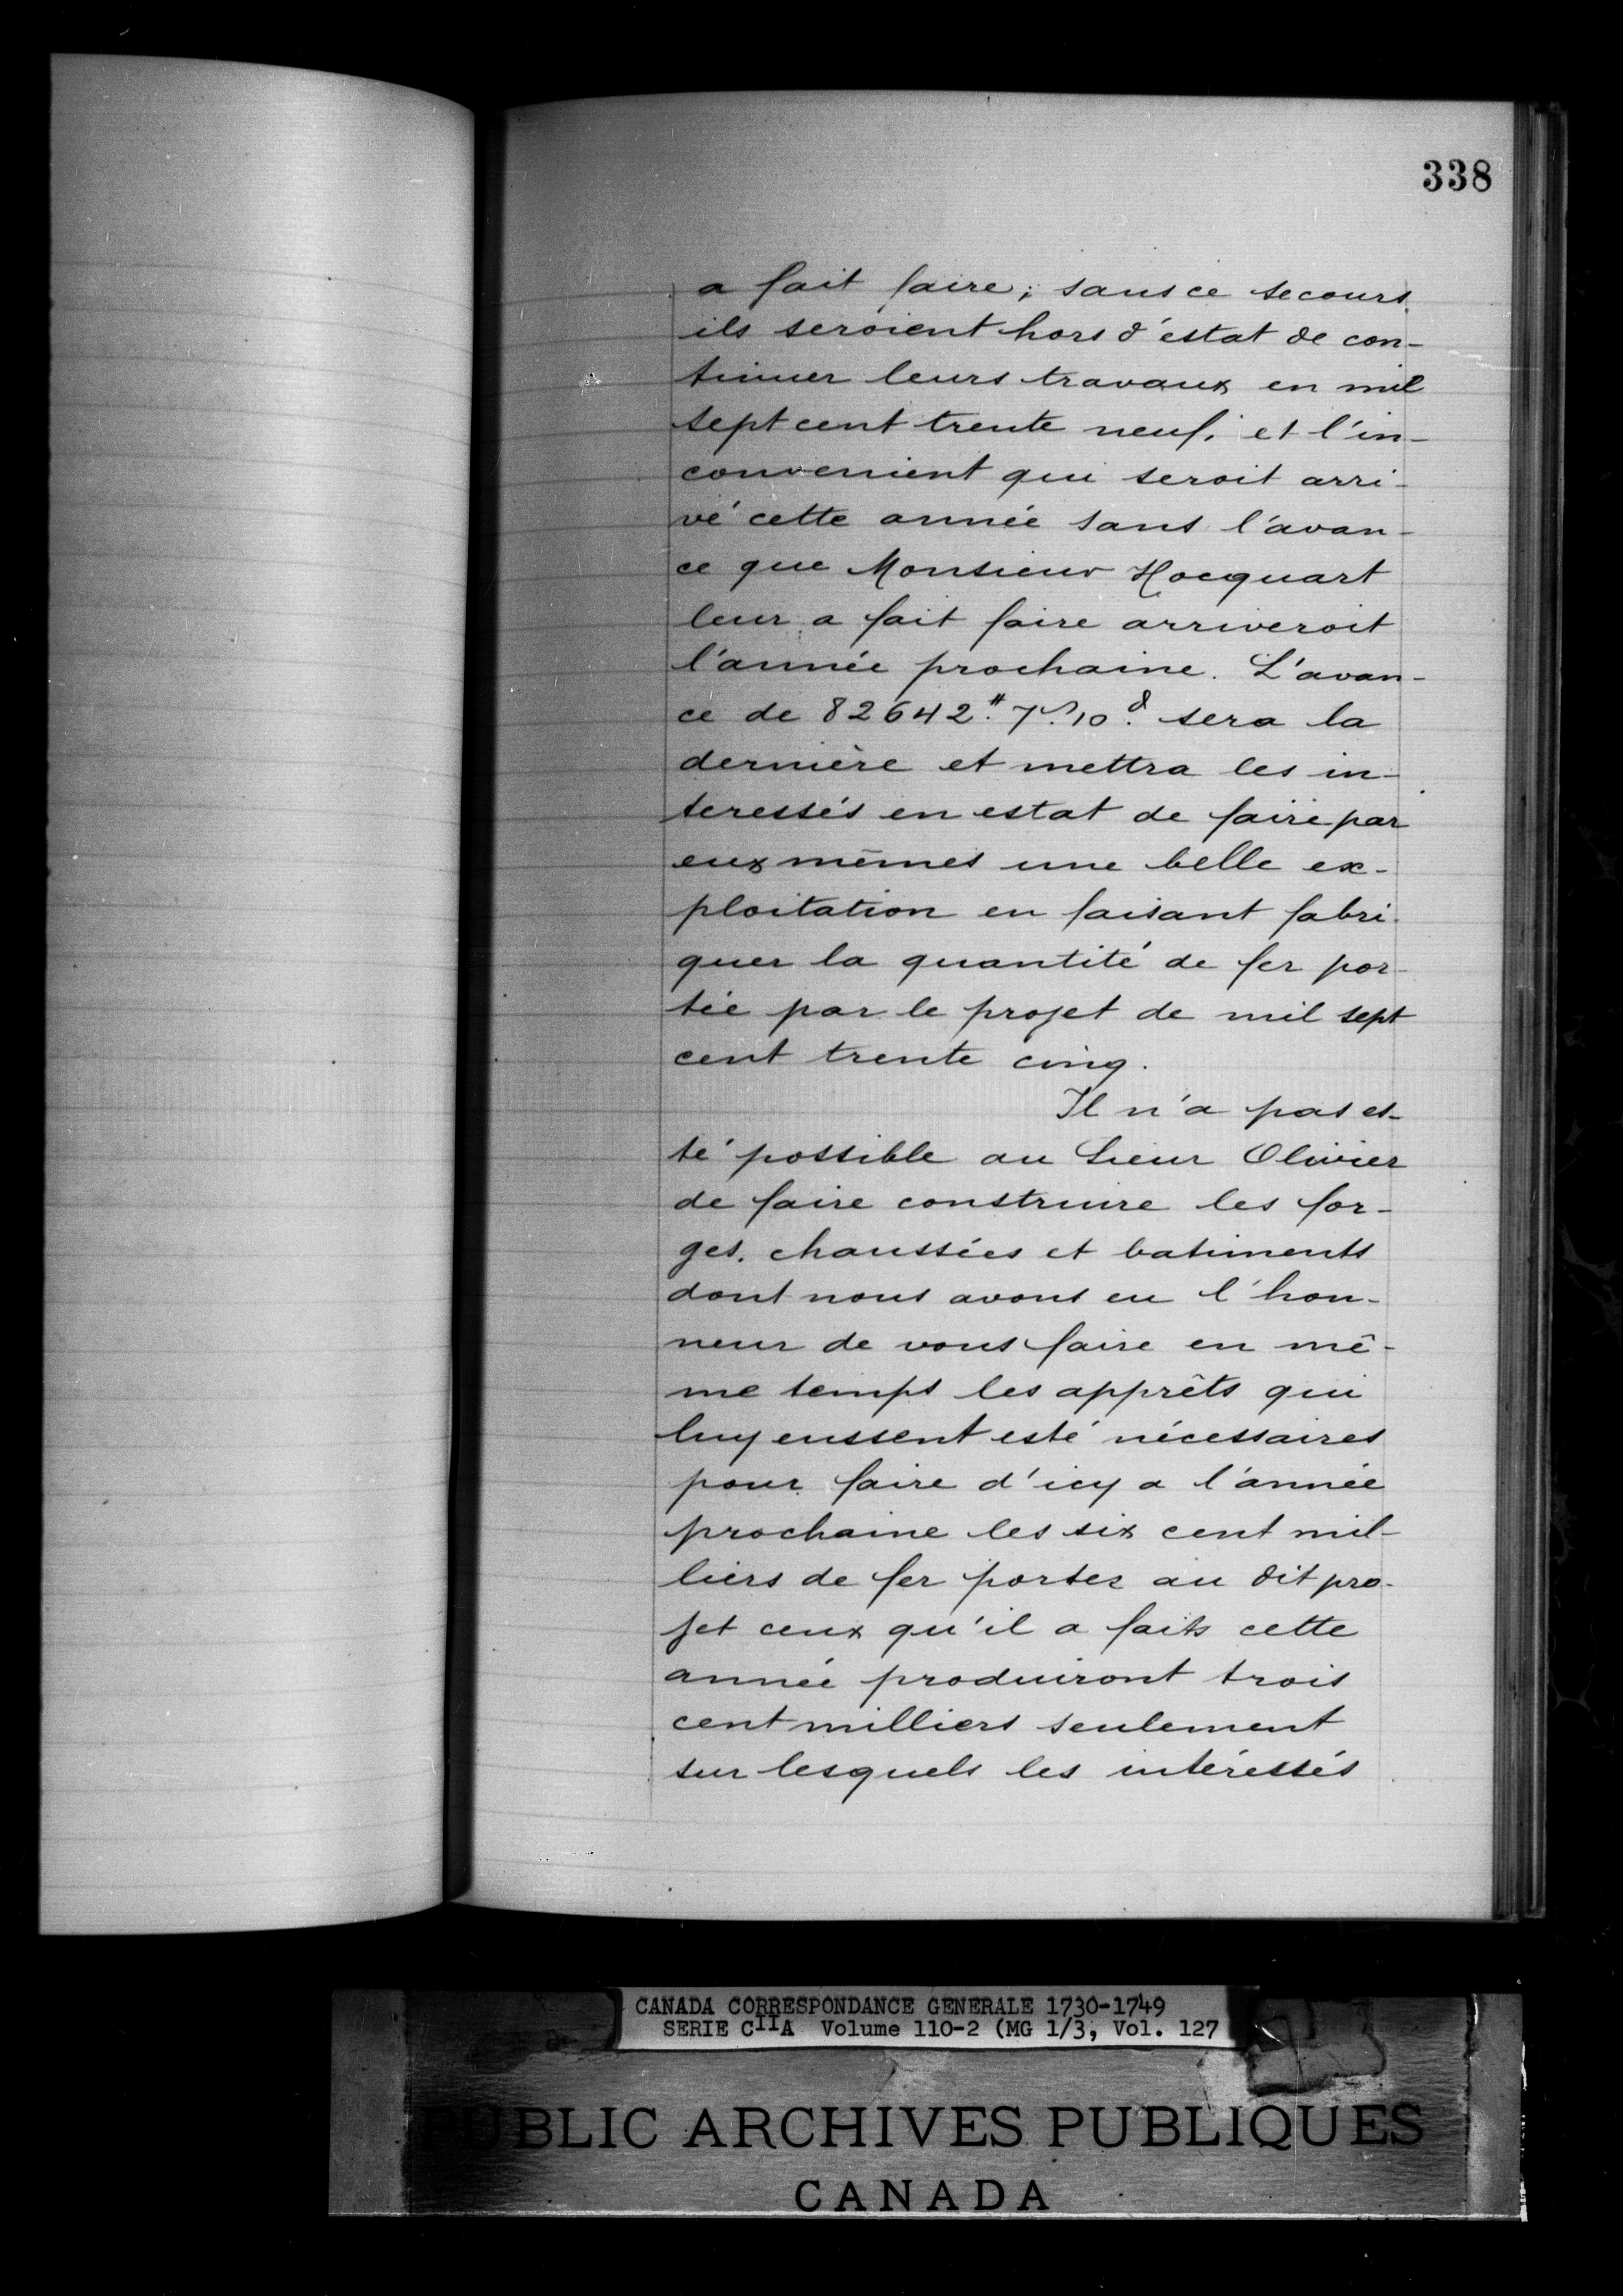 338
a fait faire; sans ce secours
ils seroient hors d'estat de con-
tinuer leurs travaux en mil
sept cent trente neuf, et l'in-
convenient qui seroit arri-
vé cette année sans l'avan-
ce que Monsieur Hocquart
leur a fait faire arriveroit
l'année prochaine. L'avan-
ce de 82642.# 7.s 10.d sera la
dernière et mettra les in-
teressés en estat de faire par
eux mêmes une belle ex-
ploitation en faisant fabri-
quer la quantité de fer por-
tée par le projet de mil sept
cent trente cinq.
Il n'a pas es-
té possible au Sieur Olivier
de faire construire les for-
ges, chaussées et batiments
dont nous avons eu l'hon-
neur de vous faire en mê-
me temps les apprêts qui
luy eussent esté nécessaires
pour faire d'icy a l'année
prochaine les six cent mil-
liers de fer portez au dit pro-
jet ceux qu'il a faits cette
année produiront trois
cent milliers seulement
sur lesquels les intéressés
CANADA CORRESPONDANCE GENERALE 1730-1749
SERIE CIIA Volume 110-2 (MG 1/3, Vol. 127
PUBLIC ARCHIVES PUBLIQUES
CANADA